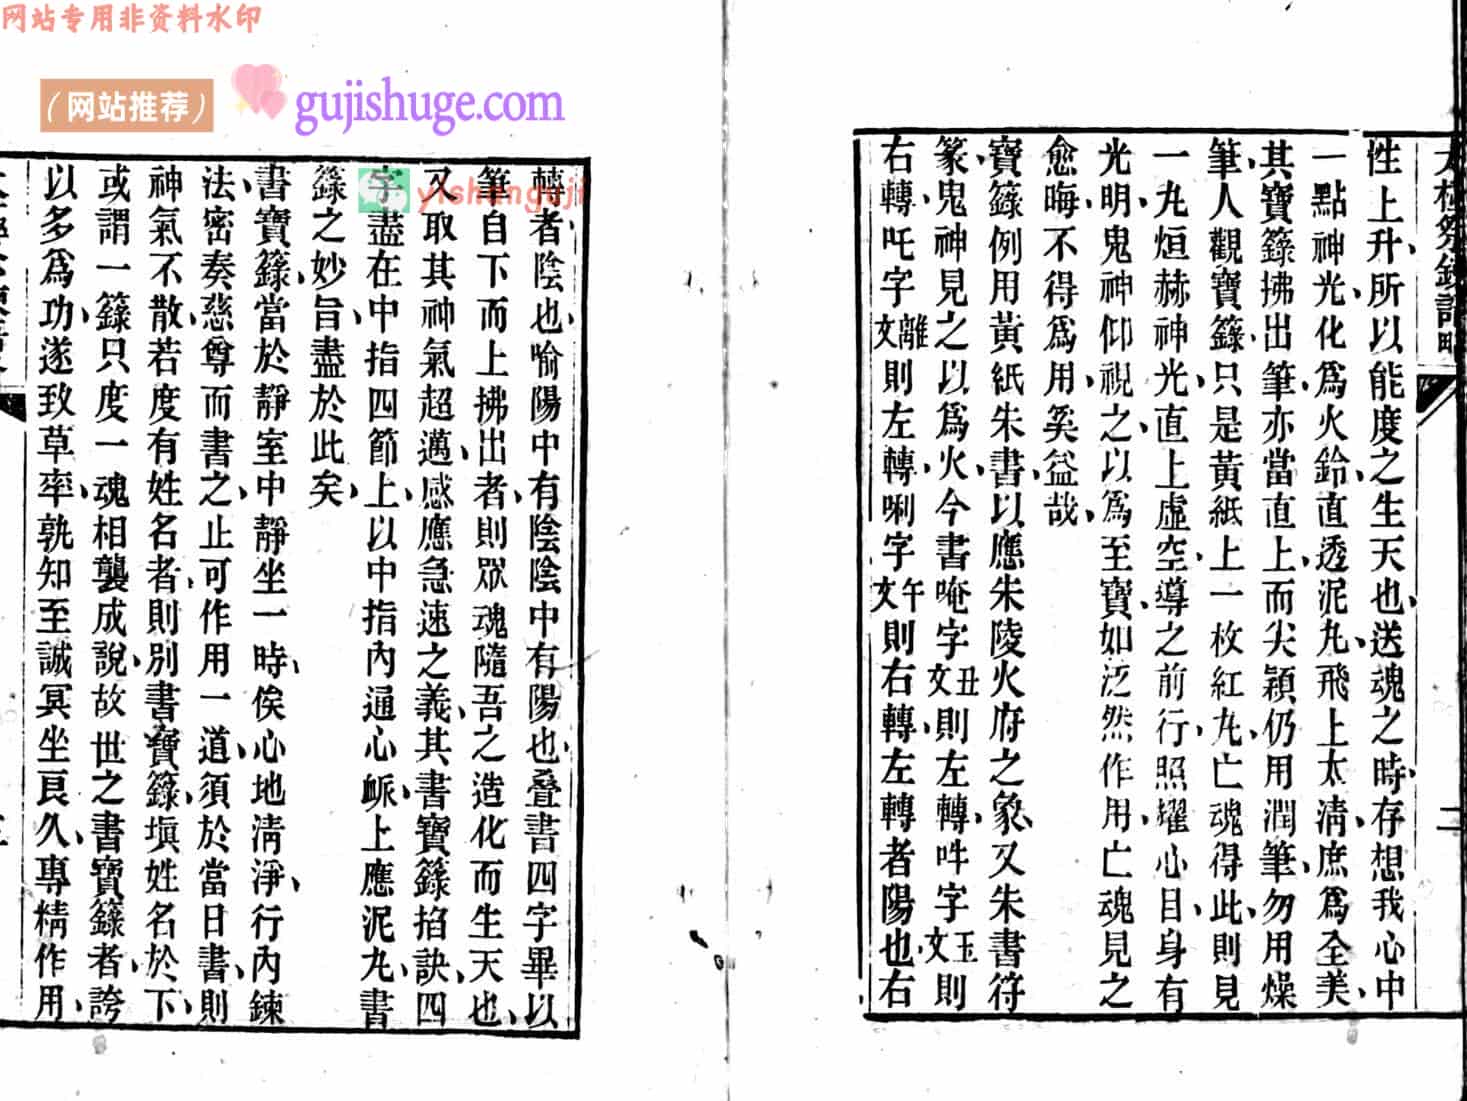 网站专用非资料水印
（网站推荐）
gujishuge.com
yishanguji
性上升、所以能度之生天也、送魂之時、存想我心中
一點神光、化爲火鈴、直透泥丸、飛上太清、庶爲全美、
其寶籙拂出筆、亦當直上、而尖穎仍用潤筆、勿用燥
筆、人觀寶籙、只是黃紙上一枚紅丸、亡魂得此、則見
一丸烜赫神光、直上虛空、導之前行、照耀心目、身有
光明、鬼神仰視之、以爲至寶、如泛然作用、亡魂見之
愈晦、不得爲用、奚益哉、
寶籙例用黃紙朱書、以應朱陵火府之象、又朱書符
篆、鬼神見之以爲火、今書唵字丑文則左轉、吽字玉文則
右轉、吒字離文則左轉、唎字午文則右轉、左轉者陽也、右
轉者陰也、喻陽中有陰、陰中有陽也、叠書四字畢、以
筆自下而上拂出者、則眾魂隨吾之造化而生天也、
又取其神氣超邁、感應急速之義、其書寶籙掐訣、四
字盡在中指四節上、以中指內通心脈、上應泥丸、書
籙之妙旨、盡於此矣、
書寶籙、當於靜室中靜坐一時、俟心地淸淨、行內鍊
法、密奏慈尊而書之、止可作用一道、須於當日書、則
神氣不散、若度有姓名者、則別書寶籙、塡姓名於下、
或謂一籙只度一魂、相襲成說、故世之書寶籙者、誇
以多爲功、遂致草率、孰知至誠冥坐良久、專精作用、
二